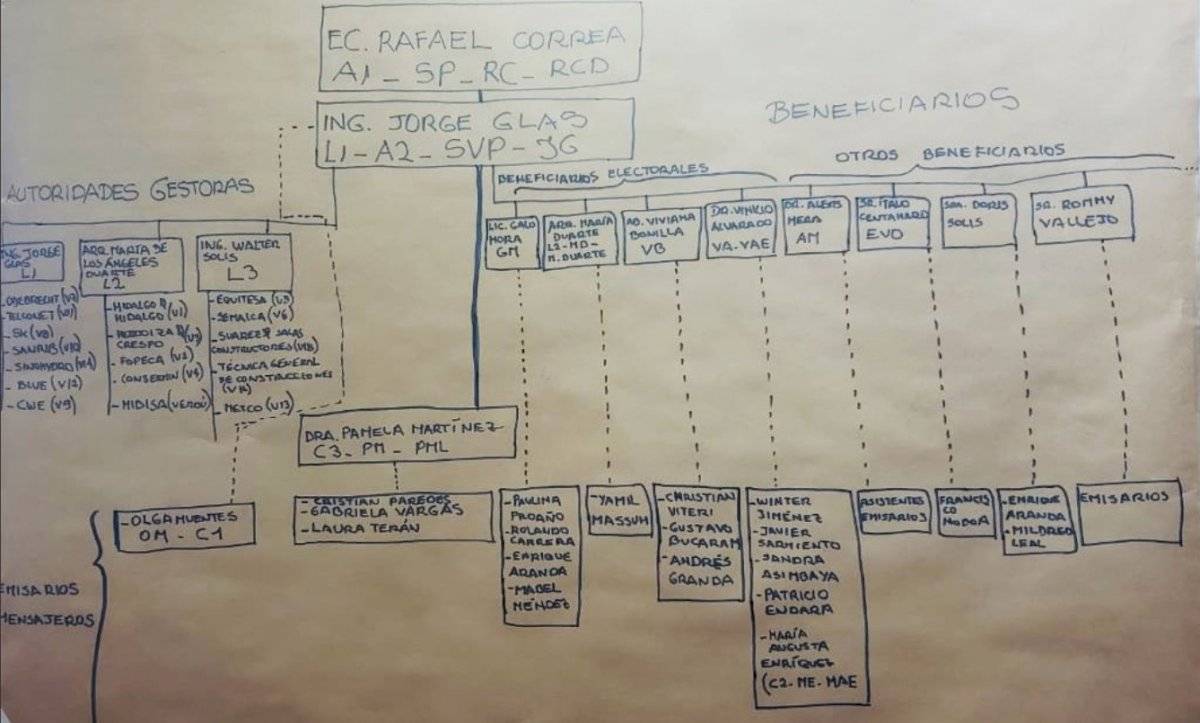 EC. RAFAEL CORREA
A1 _ SP _ RC _ RCD
ING. JORGE GLAS
L1 - A2 - SVP - JG
BENEFICIARIOS
BENEFICIARIOS ELECTORALES
OTROS BENEFICIARIOS
AUTORIDADES GESTORAS
ING. JORGE
GLAS
L1
- ODEBRECHT (V7)
- TELCONET (V11)
- SK (V8)
- SINOHYDRO (V14)
- BLUE (V12)
- CWE (V9)
ARQ. MARÍA DE
LOS ÁNGELES
DUARTE
L2
- HIDALGO &
HIDALGO (V1)
CRESPO
- FOPECA (V2)
- CONSERMIN (V4)
- MIDISA (VERDÚ)
ING. WALTER
SOLIS
L3
- EQUITESA (V5)
- SEMAICA (V6)
- SUAREZ & SALAS
CONSTRUCTORES (V18)
- TÉCNICA GENERAL
DE CONSTRUCCIONES
- METCO (V13)
LIC. GALO
MORA
GM
ARQ. MARÍA
DUARTE
L2-MD-
M. DUARTE
AB. VIVIANA
BONILLA
VB
DR. VINICIO
ALVARADO
VA-VAE
DR. ALEXIS
MERA
AM
SR. ITALO
CENTANARO
EVD
SRA. DORIS
SOLIS
SR. ROMMY
VALLEJO
DRA. PAMELA MARTÍNEZ
C3 - PM - PML
EMISARIOS
MENSAJEROS
- OLGA MUENTES
OM - C1
- CRISTIAN PAREDES
- GABRIELA VARGAS
- LAURA TERÁN
- PAULINA
PROAÑO
- ROLANDO
CARRERA
- ENRIQUE
ARANDA
- MABEL
MÉNDEZ
- YAMIL
MASSUH
- CHRISTIAN
VITERI
- GUSTAVO
BUCARAM
- ANDRÉS
GRANDA
- WINTER
JIMÉNEZ
- JAVIER
SARMIENTO
- SANDRA
ASIMBAYA
- PATRICIO
ENDARA
- MARÍA
AUGUSTA
ENRÍQUEZ
(C2-ME-MAE
ASISTENTES
EMISARIOS
FRANCIS
CO
- ENRIQUE
ARANDA
- MILDRED
LEAL
EMISARIOS